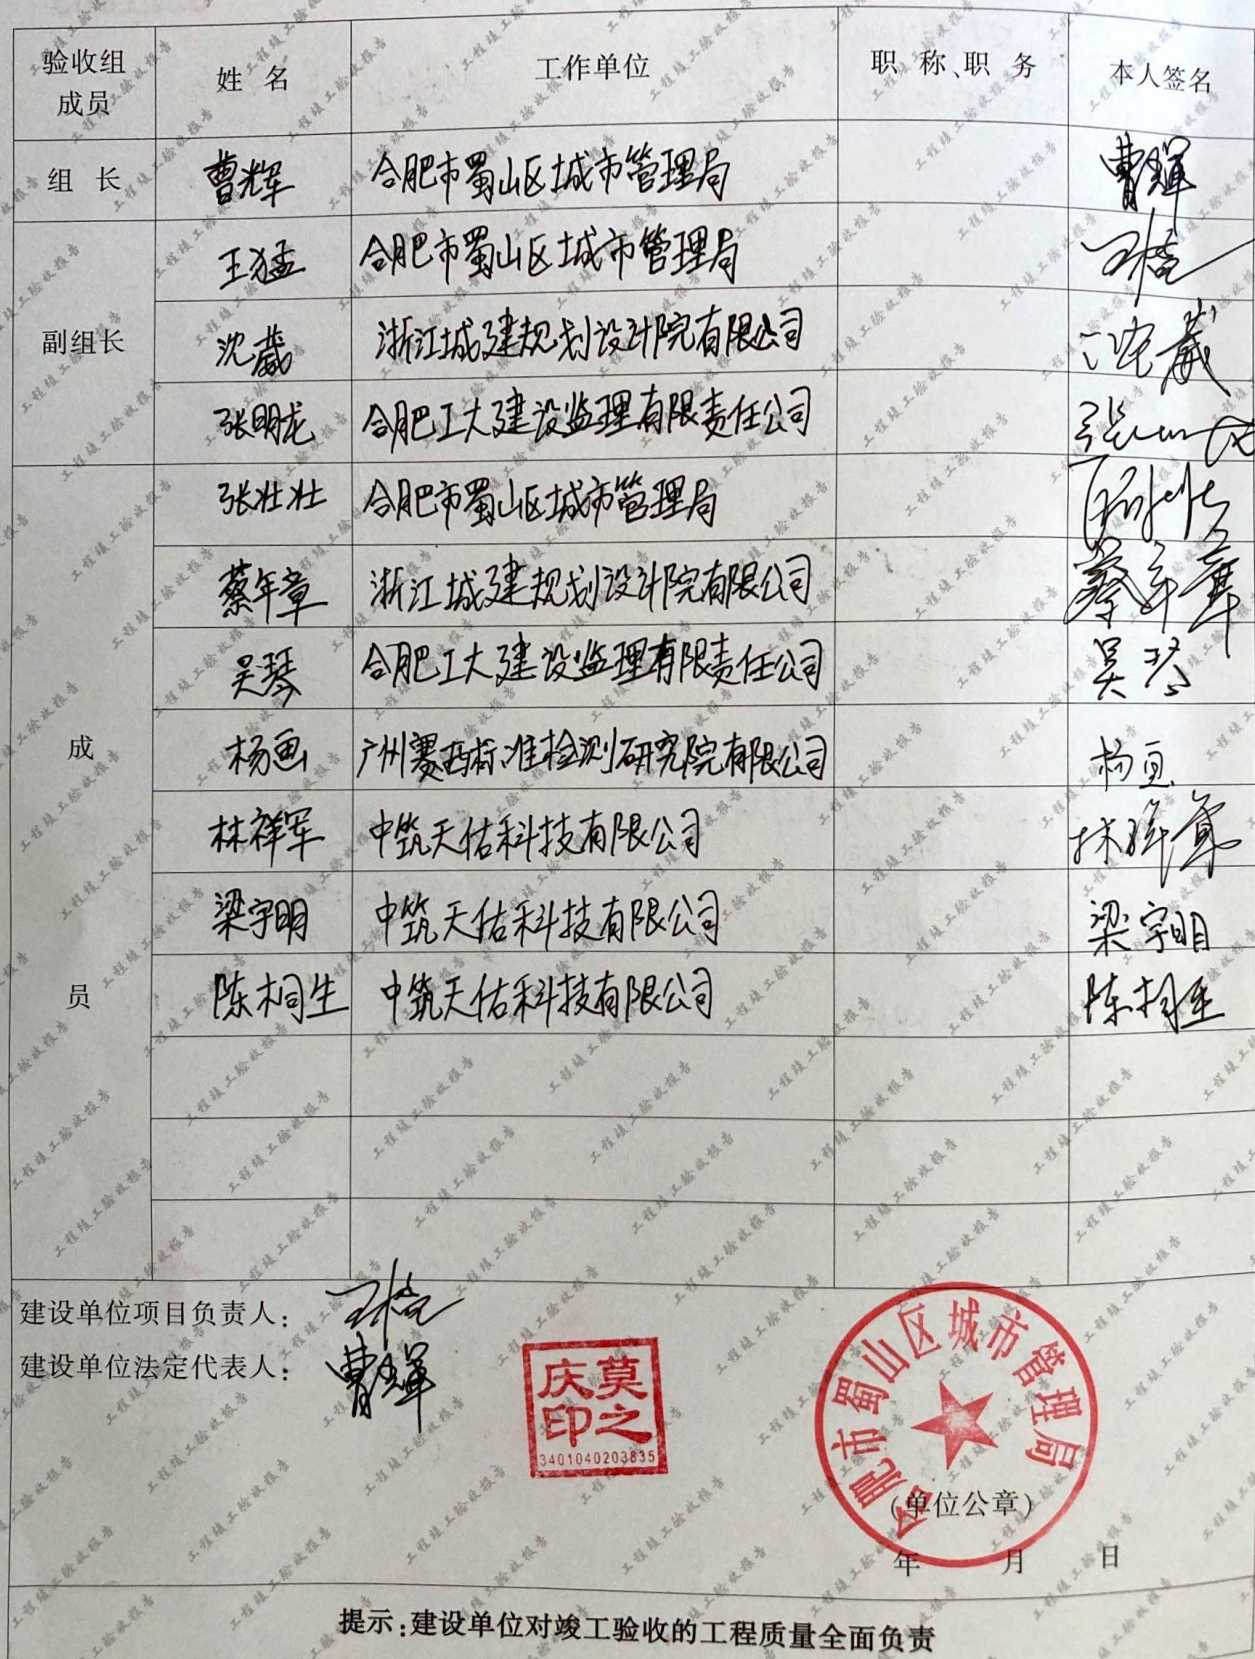 验收组成员 姓名 工作单位 职称、职务 本人签名
组长 曹辉 合肥市蜀山区城市管理局 曹辉
副组长
王猛 合肥市蜀山区城市管理局
沈葳 浙江城建规划设计院有限公司 沈葳
张明龙 合肥工大建设监理有限责任公司
成员
张壮壮 合肥市蜀山区城市管理局
蔡年章 浙江城建规划设计院有限公司 蔡年章
吴琴 合肥工大建设监理有限责任公司 吴琴
杨画 广州赛西标准检测研究院有限公司 杨画
林祥军 中筑天佑科技有限公司 林祥军
梁宇明 中筑天佑科技有限公司 梁宇明
陈桐生 中筑天佑科技有限公司 陈桐生
建设单位项目负责人：
建设单位法定代表人： 曹辉
莫之庆印
3401040203835
合肥市蜀山区城市管理局
（单位公章）
年 月 日
提示：建设单位对竣工验收的工程质量全面负责
工程竣工验收报告